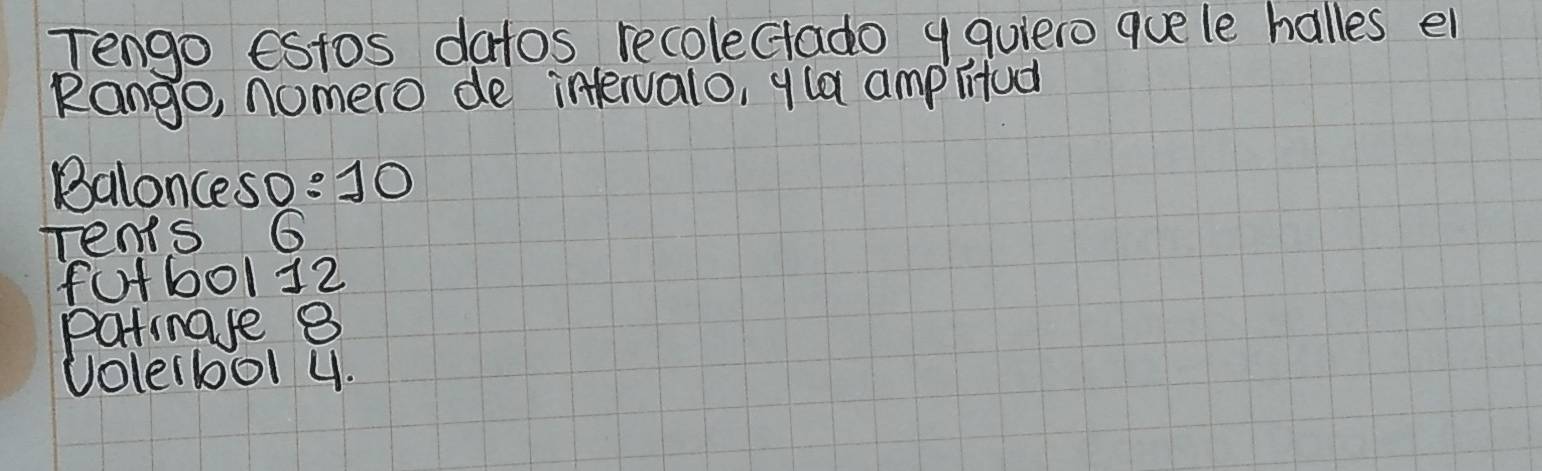 Tengo estos datos recolectado y quiero que le halles el
Rango, numero de intervalo, y la amplitud
Balonceso: 10
Tenis 6
futbol 12
patinaje 8
voleibol 4.